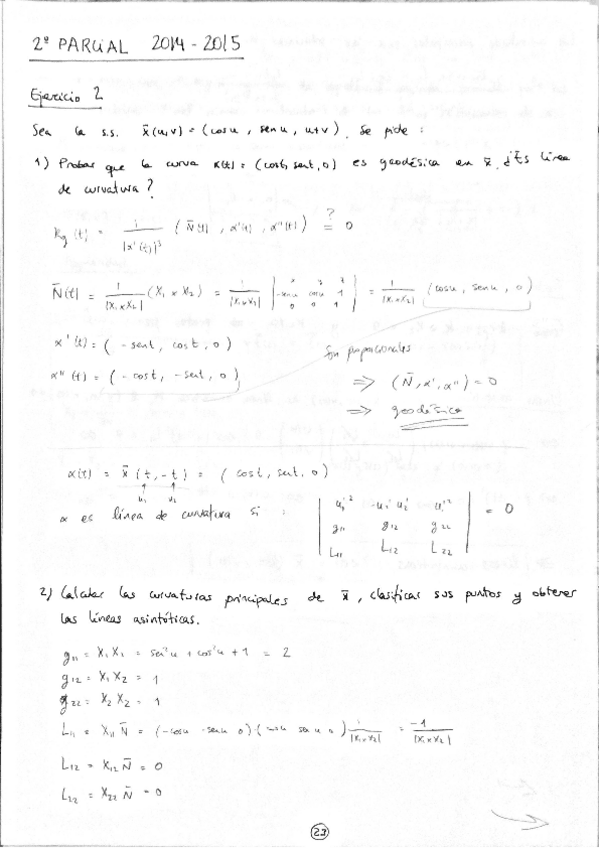 2º PARCIAL 2014-2015
Ejercicio 2
Sea la s.s. x̄(u,v) = (cosu, senu, u+v). Se pide:
1) Probar que la curva α(t) = (cost, sent, 0) es geodésica en x̄. ¿Es línea
de curvatura?
Kg(t) = 1/|α'(t)|³ (N̄(t), α'(t), α''(t)) ?= 0
N̄(t) = 1/|X₁×X₂| (X₁×X₂) = 1/|X₁×X₂| | x y z ; -senu cosu 1 ; 0 0 1 | = 1/|X₁×X₂| (cosu, senu, 0)
α'(t) = (-sent, cost, 0)
Son proporcionales
α''(t) = (-cost, -sent, 0)
⇒ (N̄, α', α'') = 0
⇒ geodésica
α(t) = x̄(t, -t) = (cost, sent, 0)
↑ ↑
u₁ u₂
α es línea de curvatura si : | u₂'² -u₁'u₂' u₁'² ; g₁₁ g₁₂ g₂₂ ; L₁₁ L₁₂ L₂₂ | = 0
2) Calcular las curvaturas principales de x̄, clasificar sus puntos y obtener
las líneas asintóticas.
g₁₁ = X₁X₁ = sen²u + cos²u + 1 = 2
g₁₂ = X₁X₂ = 1
g₂₂ = X₂X₂ = 1
L₁₁ = X₁₁N̄ = (-cosu -senu 0)·(cosu senu 0) 1/|X₁×X₂| = -1/|X₁×X₂|
L₁₂ = X₁₂N̄ = 0
L₂₂ = X₂₂N̄ = 0
27